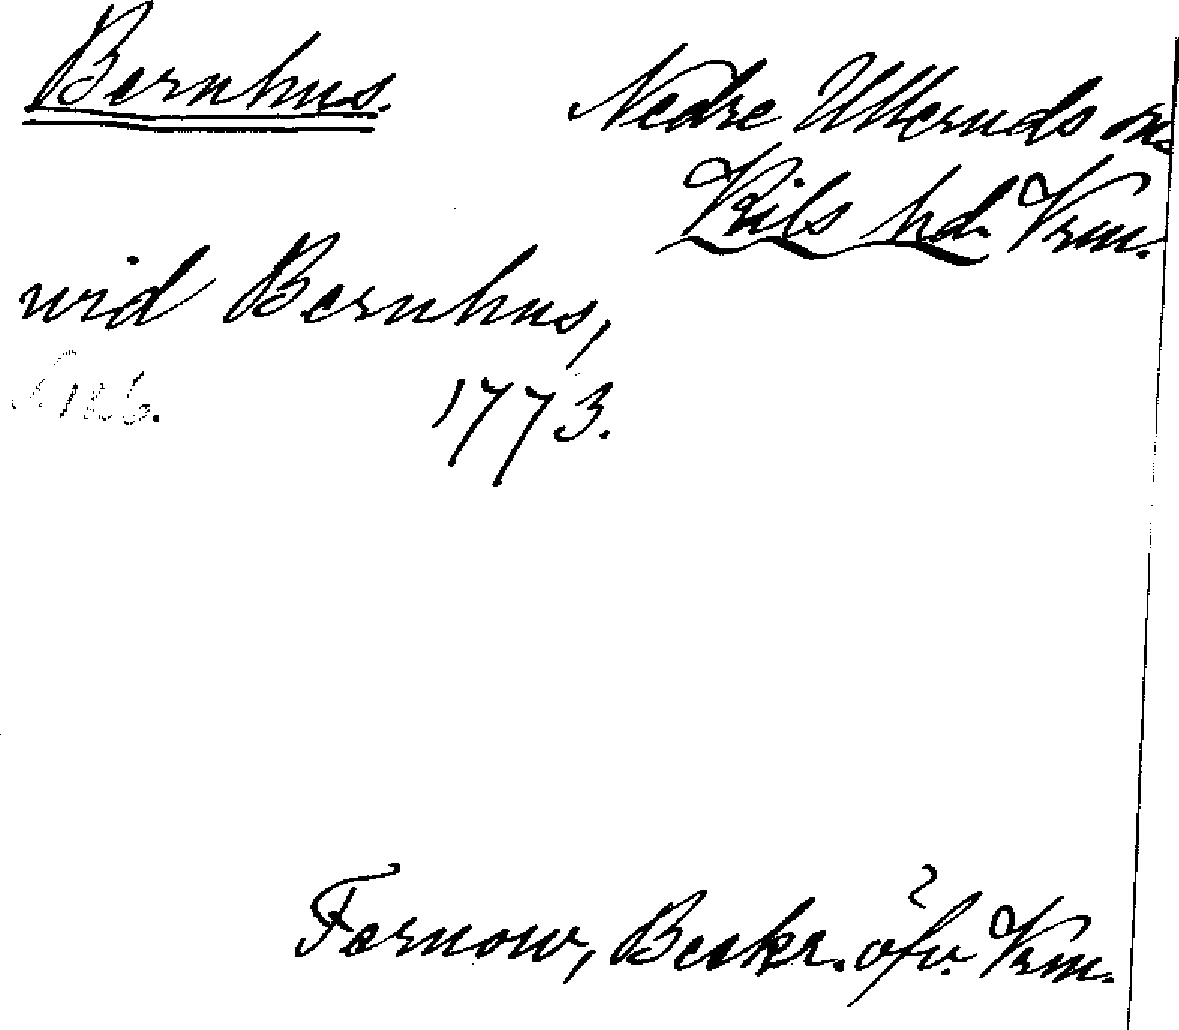 Bernhus.
Nedre Ulleruds sn.
Kils hd. Vrm.
vid Bernhus,
1773.
Fernow, Beskr. öfv. Vrm.